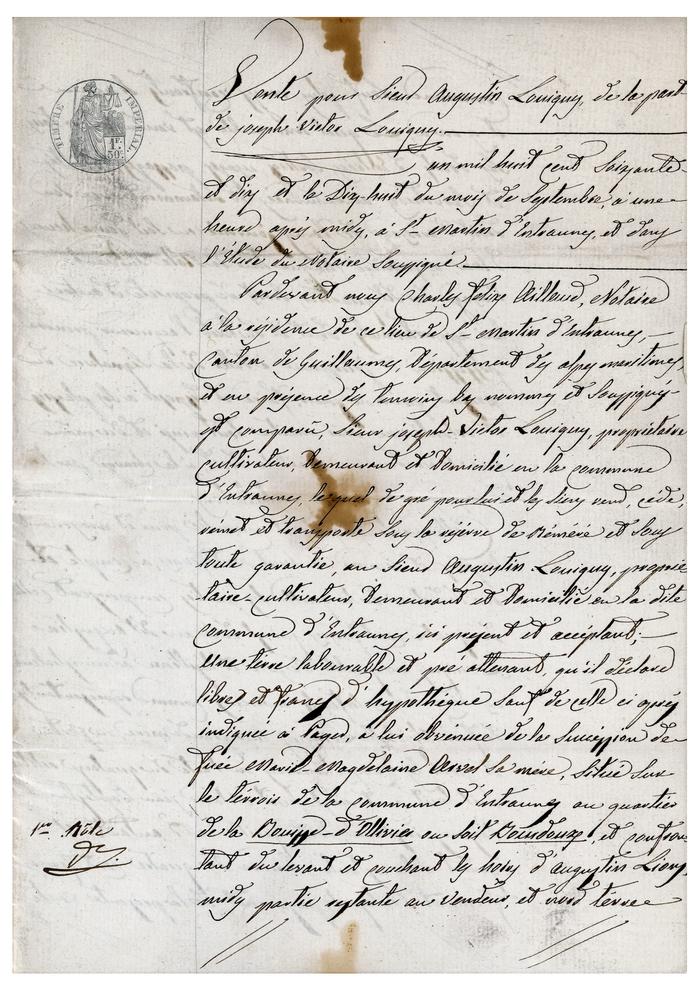 TIMBRE IMPERIAL
1F.
50c.
Vente pour Sieur Augustin Louiquy, de la part
de joseph Victor Louiquy.
an mil huit cent Soixante-
et dix et le Dix-huit du mois de Septembre, à une
heure après midy, à St Martin d'Entraunes, et dans
l'Etude du Notaire Soussigné.
Pardevant nous Charles Félix Aillaud, Notaire
à la résidence de ce lieu de St Martin d'Entraunes,
Canton de Guillaumes, Département des alpes maritimes,
et en présence des temoins bas nommés et Soussignés-
est comparu, Sieur joseph-Victor Louiquy, propriétaire
cultivateur, Demeurant et Domicilié en la commune
d'Entraunes, le quel de gré pour lui et les siens vend, cède,
remet et transporte sous la réserve de Réméré et sous
toute garantie, au Sieur Augustin Louiquy, proprié
-taire-cultivateur, Demeurant et Domicilié en la dite
commune d'Entraunes, ici présent et acceptant:
une terre labourable et pré attenant, qu'il déclare
libres et francs d'hypothèque sauf de celle ci après
indiquée à Pages, à lui obvenue de la Succession de
feue Marie-Magdelaine Arnal sa mère, située sur
le térroir de la commune d'Entraunes au quartier
de la d'Ollivier ou soit et confron-
tant du levant et couchant les hoirs d'Augustin Lions,
midy partie restante au vendeur, et nord terre
1er Rôle